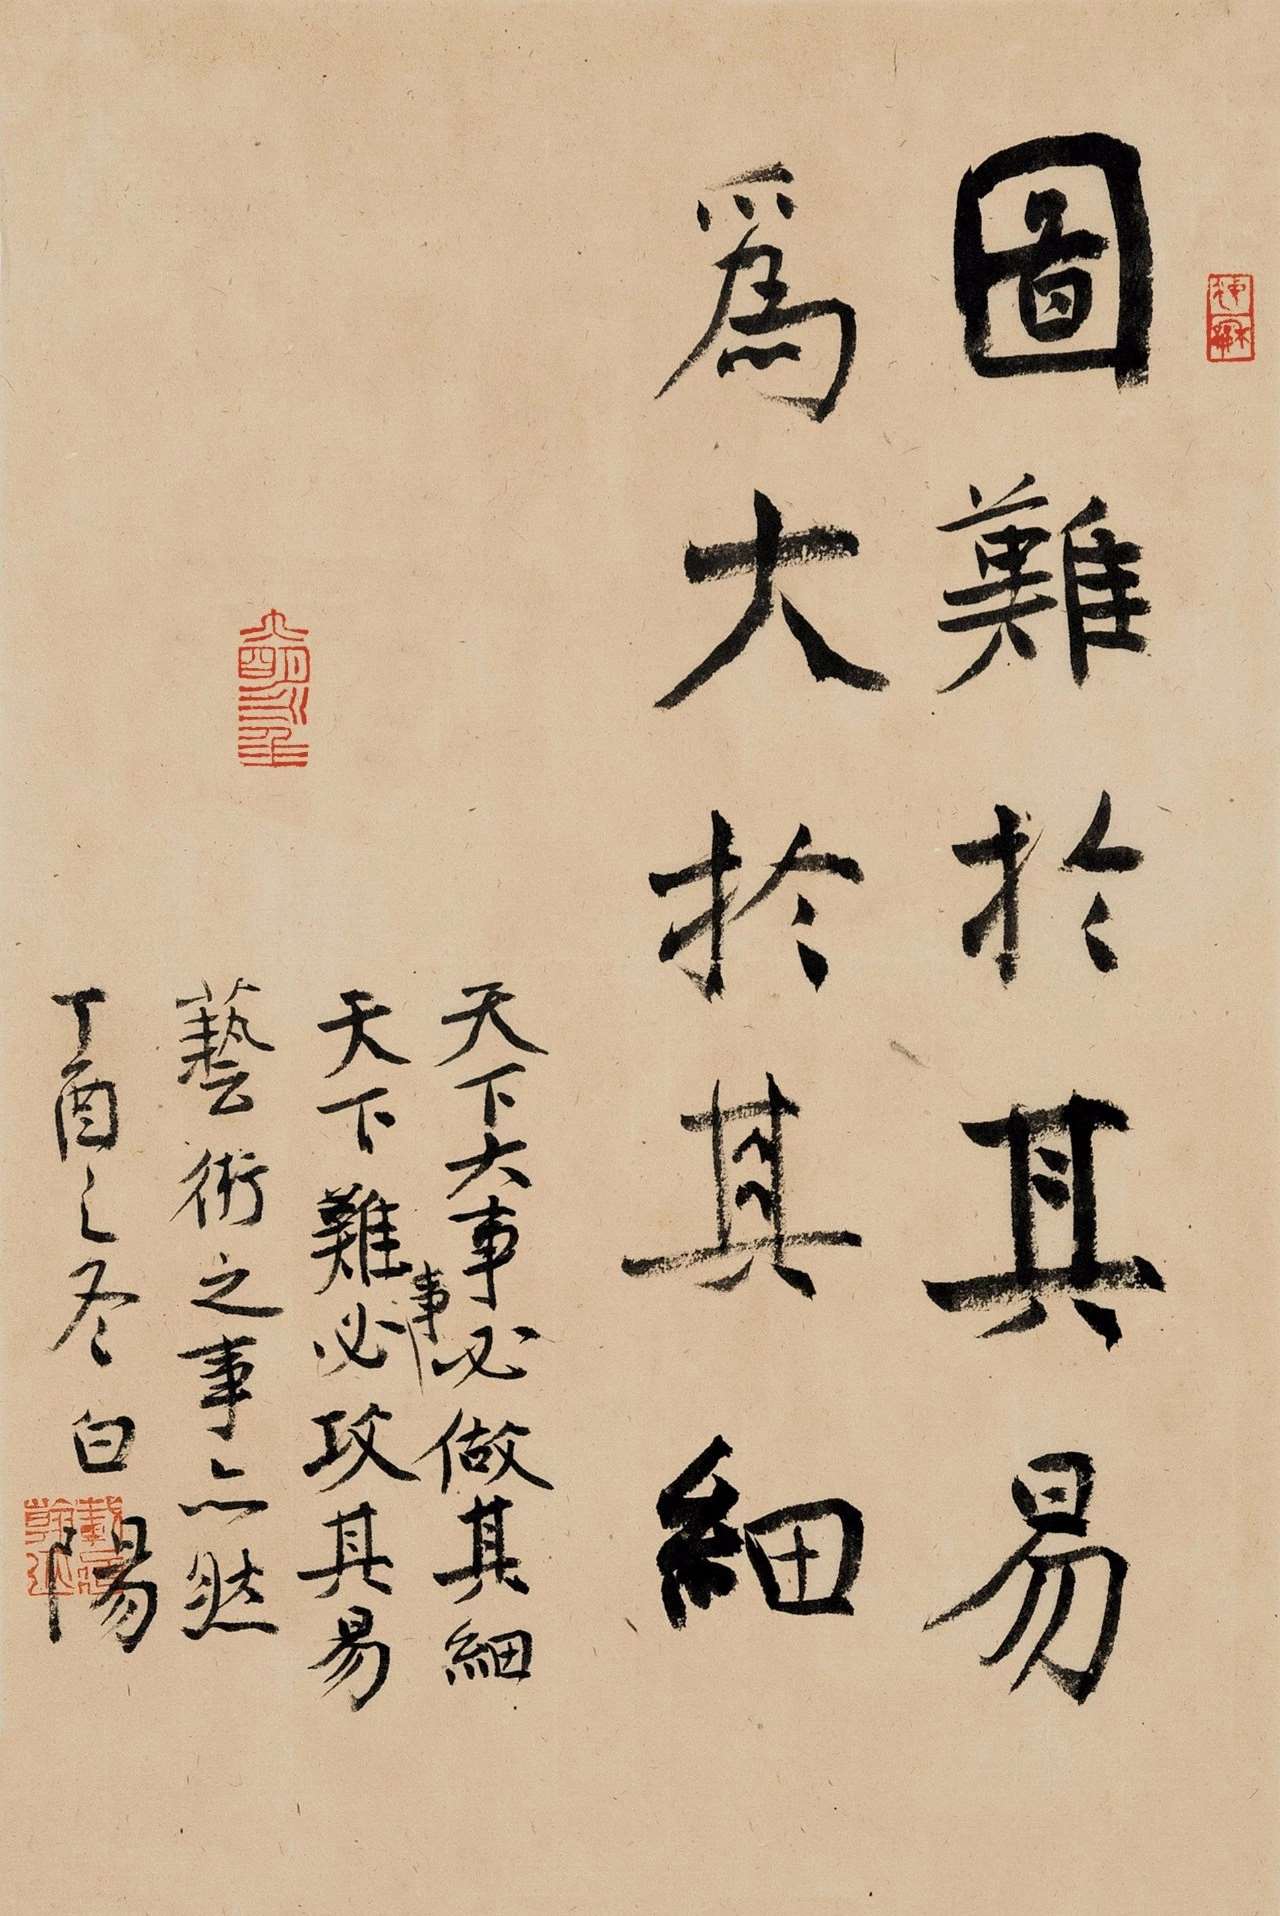 圖難於其易
爲大於其細
天下大事必做其細
天下難事必攻其易
藝術之事亦然
丁酉之冬白陽